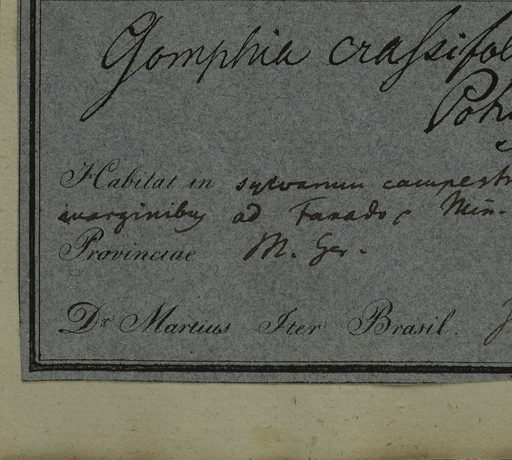 Gomphia crassifol
Poh
Habitat in sylvarum campestr
marginibus ad Tanado, Min.
Provinciae M. Ger.
Dr. Martius Iter Brasil.